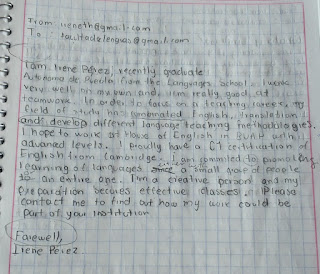 From: irene th@gmail.com
To: facultadlenguas@gmail.com
I am Irene Pérez, recently graduate
Autonoma de Puebla from the Languages School. I work
very well on my own and, I am really good at
teamwork. In order to focus on a teaching career, my
field of study has combinated English, translation
and develop different language teaching methodologies.
I hope to work at House of English in BUAP with
advanced levels. I proudly have a C1 certification of
English from Cambridge. I am commited to promoting
learning of languages since a small group of people
to an entire one. I'm a creative person and my
preparation becomes effective classes. Please
contact me to find out how my work could be
part of your institution
Farewell,
Irene Pérez